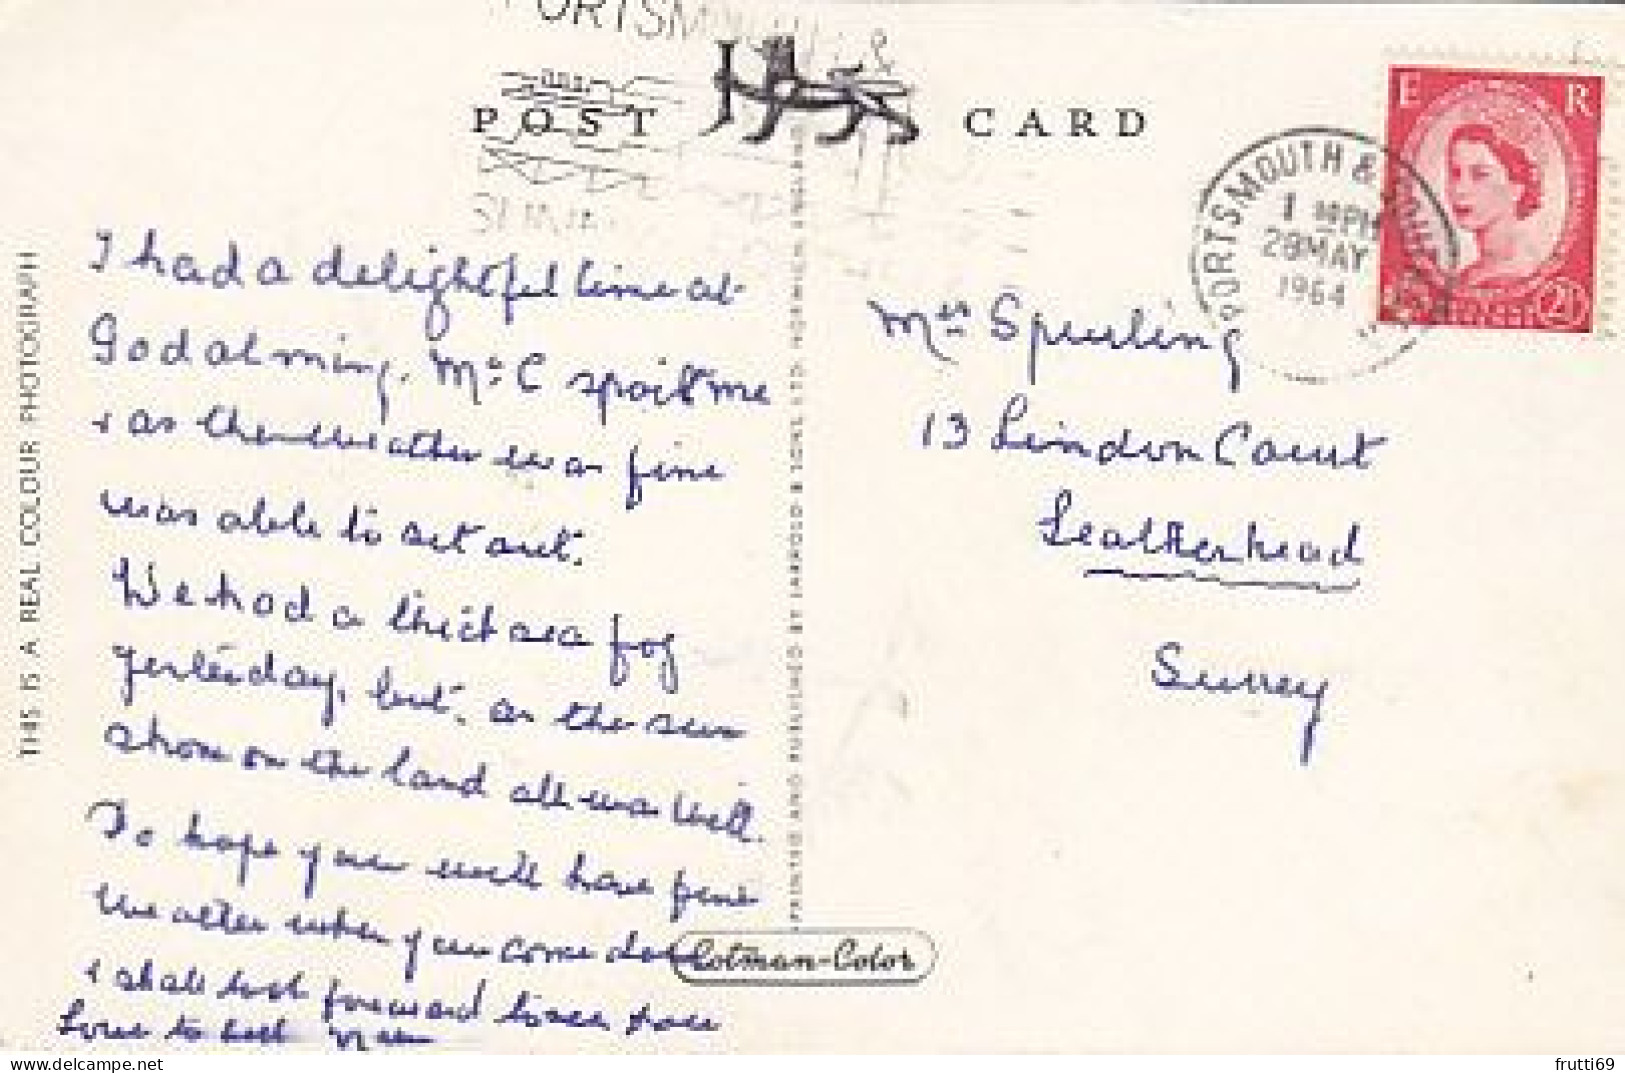 PORTSMOUTH &
POST CARD
I had a delightful time at
Godalming. Mrs C spoilt me
& as the weather was fine
was able to get out.
We had a thick sea fog
yesterday, but, as the sun
shone on the land all was well.
Do hope you will have fine
weather when you come down
& shall look forward to see you
Love to both
THIS IS A REAL COLOUR PHOTOGRAPH
PRINTED AND PUBLISHED BY JARROLD & SONS LTD. NORWICH. ENGLAND
Cotman-Color
E R
2½
PORTSMOUTH &
PM
28 MAY
1964
Mrs Spurling
13 Lindon Court
Leatherhead
Surrey
frutti69